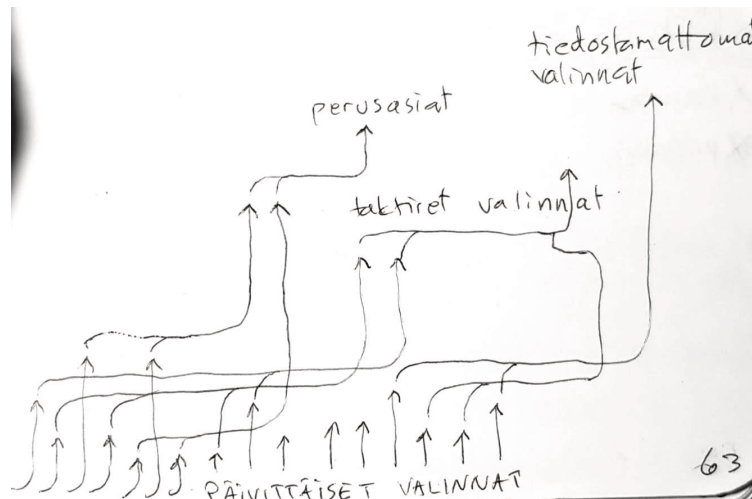 tiedostamattomat
valinnat
perusasiat
taktiset valinnat
PÄIVITTÄISET VALINNAT
63